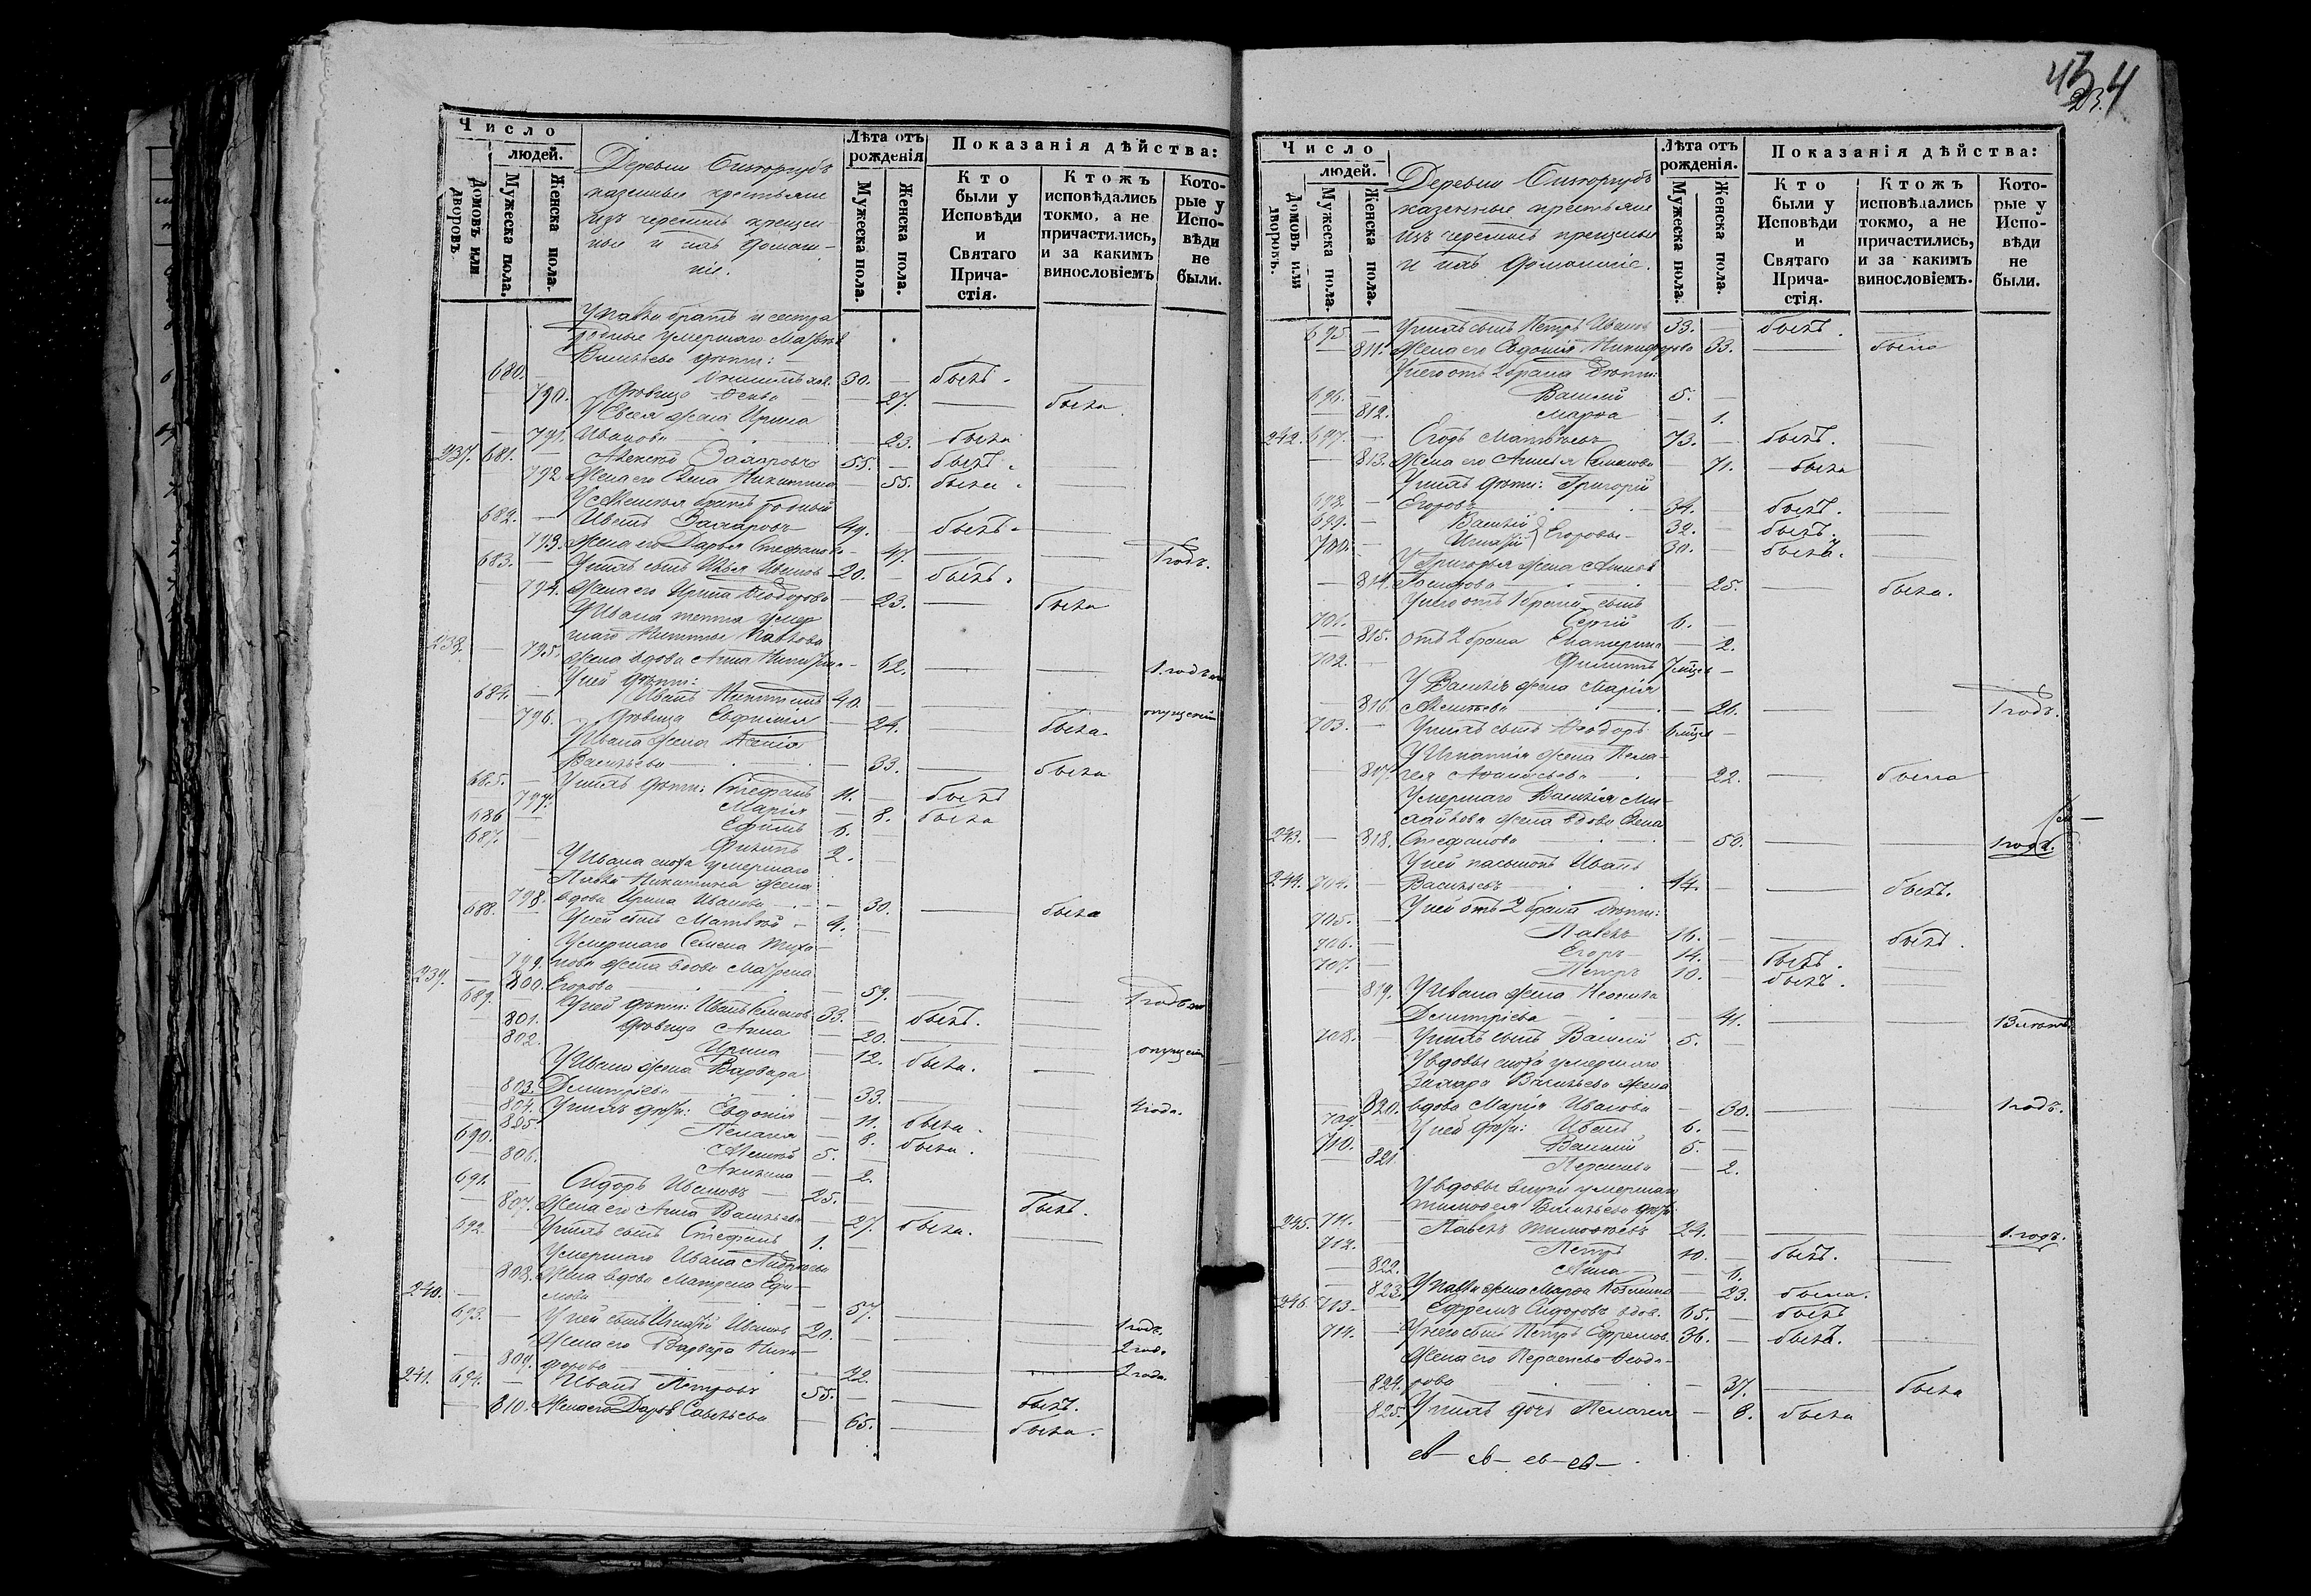 Число
людей.
Домовъ или дворовъ
Мужеска пола.
Женска пола.
Деревни
казенные крестьяне
изъ черемисъ крещен-
ные и ихъ домаш-
ніе.
Лѣта отъ рожденія
Мужеска пола.
Женска пола.
Показанія дѣйства:
Кто были у Исповѣди и Святаго Прича-стія.
Ктожъ исповѣдались токмо, а не причастились, и за какимъ винословіемъ
Кото-рые у Испо-вѣди не были.
У Павла братъ и сестра
родные умершаго Матвѣя
Васильева дѣти:
680. 30. былъ.
790. Дѣвица 27. была.
жена Ирина
791. Иванова 23. была
237. 681. Алексѣй Захаровъ 55. былъ.
792 Жена его Елена Никитина 55. была.
У Алексѣя братъ родный
682. Иванъ Захаровъ 49. былъ.
793. Жена его Дарья Стефанова 47. 1 годъ.
683. У нихъ сынъ Илья Ивановъ 20. былъ.
794. Жена его Ирина Ѳеодорова 23. была
У Ивана тетка умер-
шаго Никиты Павлова
238. 795. жена вдова Анна 62. 1. годъ
У ней дѣти:
684. Иванъ Никитинъ 40. опущеній
796. Дѣвица Евфимія 24. была.
У Ивана жена Ксенія
Васильева 33. была
685. У нихъ дѣти: Стефанъ 11. былъ
797. Марія 8. была
686 Ефимъ 6.
687. Филипъ 2.
У Ивана сноха умершаго
Павла Никитина жена
798. вдова Ирина Иванова 30. была
688. У ней сынъ Матвѣй 4.
Умершаго Семена Тихо-
799. нова жена вдова Матрена
239. 800. Егорова 59. 1 годъ
689. У ней дѣти: Иванъ Семеновъ 33. былъ.
801. Дѣвица Анна 20. опущеній
802. Ирина 12. была.
У Ивана жена Варвара
803. Димитріева 33. 4 года.
804. У нихъ дѣти: Евдокія 11. была.
805 Пелагія 8. была.
690. Алексѣй 5.
806. Акилина 2.
691. Сидоръ Ивановъ 25. былъ.
807. Жена его Анна Васильева 27. была.
692. У нихъ сынъ Стефанъ 1.
Умершаго Ивана Андреева
808. жена вдова Матрена Ефи-
240. мова 57. 1 годъ.
693. У ней сынъ Игнатій Ивановъ 20. 2 год.
Жена его Варвара Ники-
809. форова 22. 2 года.
241. 694. Иванъ Петровъ 55. былъ.
810. Жена его Дарья Савельева 65. была.
23.
Число
людей.
Домовъ или дворовъ.
Мужеска пола.
Женска пола.
Деревни
казенные крестьяне
изъ черемисъ крещеные
и ихъ домашніе.
Лѣта отъ рожденія.
Мужеска пола.
Женска пола.
Показанія дѣйства:
Кто были у Исповѣди и Святаго Прича-стія.
Ктожъ исповѣдались токмо, а не причастились, и за какимъ винословіемъ.
Кото-рые у Испо-вѣди не были.
695 У нихъ сынъ Петръ Ивановъ 33. былъ.
811. Жена его Евдокія Никифорова 33. была
У него отъ 2 брака дѣти:
696. Василій 5.
812. Марѳа 1.
242. 697. Егоръ Матвѣевъ 73. былъ.
813. Жена его Анисья Семенова 71. была
У нихъ дѣти: Григорій
698. Егоровъ 34. былъ.
699. Василій 32. былъ.
700. Игнатій } Егоровы 30. былъ.
У Григорья жена Анна
814. 25. была.
У него отъ 1 брака сынъ
701. Сергій 6.
815. отъ 2 брака Екатерина 2.
702. Филиппъ 7 мцев
У Василія жена Марія
816. Алексѣева 26. 1 годъ.
703. У нихъ сынъ Ѳеодоръ 6 мцев
У Игнатія жена Пела-
817. гея 22. была
Умершаго Василія Ми-
хайлова жена вдова Елена
243. 818. Стефанова 50. 1 годъ.
У ней пасынокъ Иванъ
244. 704. Васильевъ 44. былъ.
У ней отъ 2 брака дѣти:
705. Павелъ 16. былъ.
706. Егоръ 14. былъ.
707. Петръ 10. былъ.
819. У Ивана жена Неонила
Димитріева 41. 13 лѣтъ
708. У нихъ сынъ Василій 5.
У вдовы сноха умершаго
Захара Васильева жена
820. вдова Марія Иванова 30. 1 годъ.
709. У ней дѣти: Иванъ 6.
710. Василій 5.
821. 2.
У вдовы внуки умершаго
Тимоѳея Васильева дѣти
245. 711. Павелъ Тимоѳеевъ 24. 1. годъ.
712. Петръ 10. былъ.
822. Анна 6.
823. У Павла жена Марѳа Козмина 23. была.
246. 713. Ефремъ Сидоровъ вдов. 65. былъ
714. У него сынъ Петръ Ефремовъ 36. былъ.
Жена его Ѳеодо-
824. рова 37. была
825. У нихъ дочь Пелагея 8. была